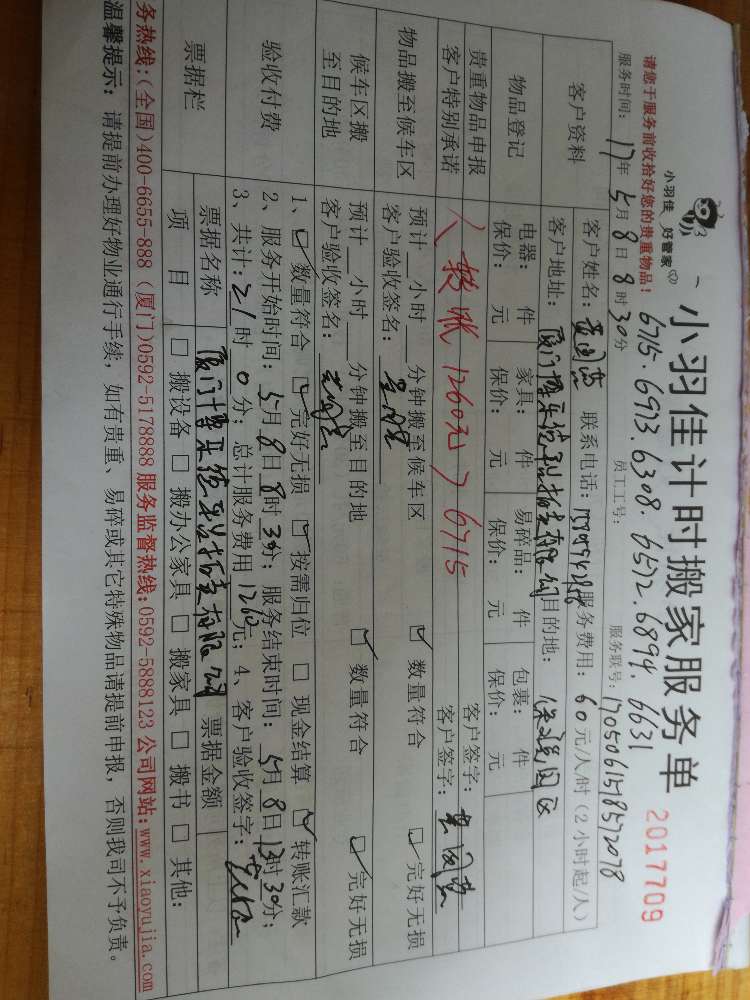 小羽佳 好管家
小羽佳计时搬家服务单
2017709
请您于服务前收拾好您的贵重物品!
6715.6973.6308.6512.6894.6631
服务时间: 17年5月8日8时30分 员工工号: 服务联号: 170506158572078
客户资料
客户姓名: 联系电话: 服务费用: 60元/人/时(2小时起/人)
客户地址: 目的地: 保税园区
物品登记
电器: 件 家具: 件 易碎品: 件 包裹: 件
保价: 元 保价: 元 保价: 元 保价: 元
贵重物品申报 客户签字:
客户特别承诺 客户签字:
(转账1260元) 6715
物品搬至候车区
预计__小时__分钟搬至候车区 ☑ 数量符合 ☑ 完好无损
客户验收签名:
候车区搬至目的地
预计__小时__分钟搬至目的地 ☑ 数量符合 ☑ 完好无损
客户验收签名:
验收付费
1、☑ 数量符合 ☑ 完好无损 ☑ 按需归位 □ 现金结算 ☑ 转账汇款
2、服务开始时间: 5月8日8时30分; 服务结束时间: 5月8日 时30分;
3、共计: 21时0分; 总计服务费用1260元; 4、客户验收签字:
票据栏
票据名称 票据金额
项目 □ 搬设备 □ 搬办公家具 □ 搬家具 □ 搬书 □ 其他:
务热线:(全国)400-6655-888 (厦门)0592-5178888 服务监督热线:0592-5888123 公司网站:www.xiaoyujia.com
温馨提示: 请提前办理好物业通行手续, 如有贵重、易碎或其它特殊物品请提前申报, 否则我司不予负责。